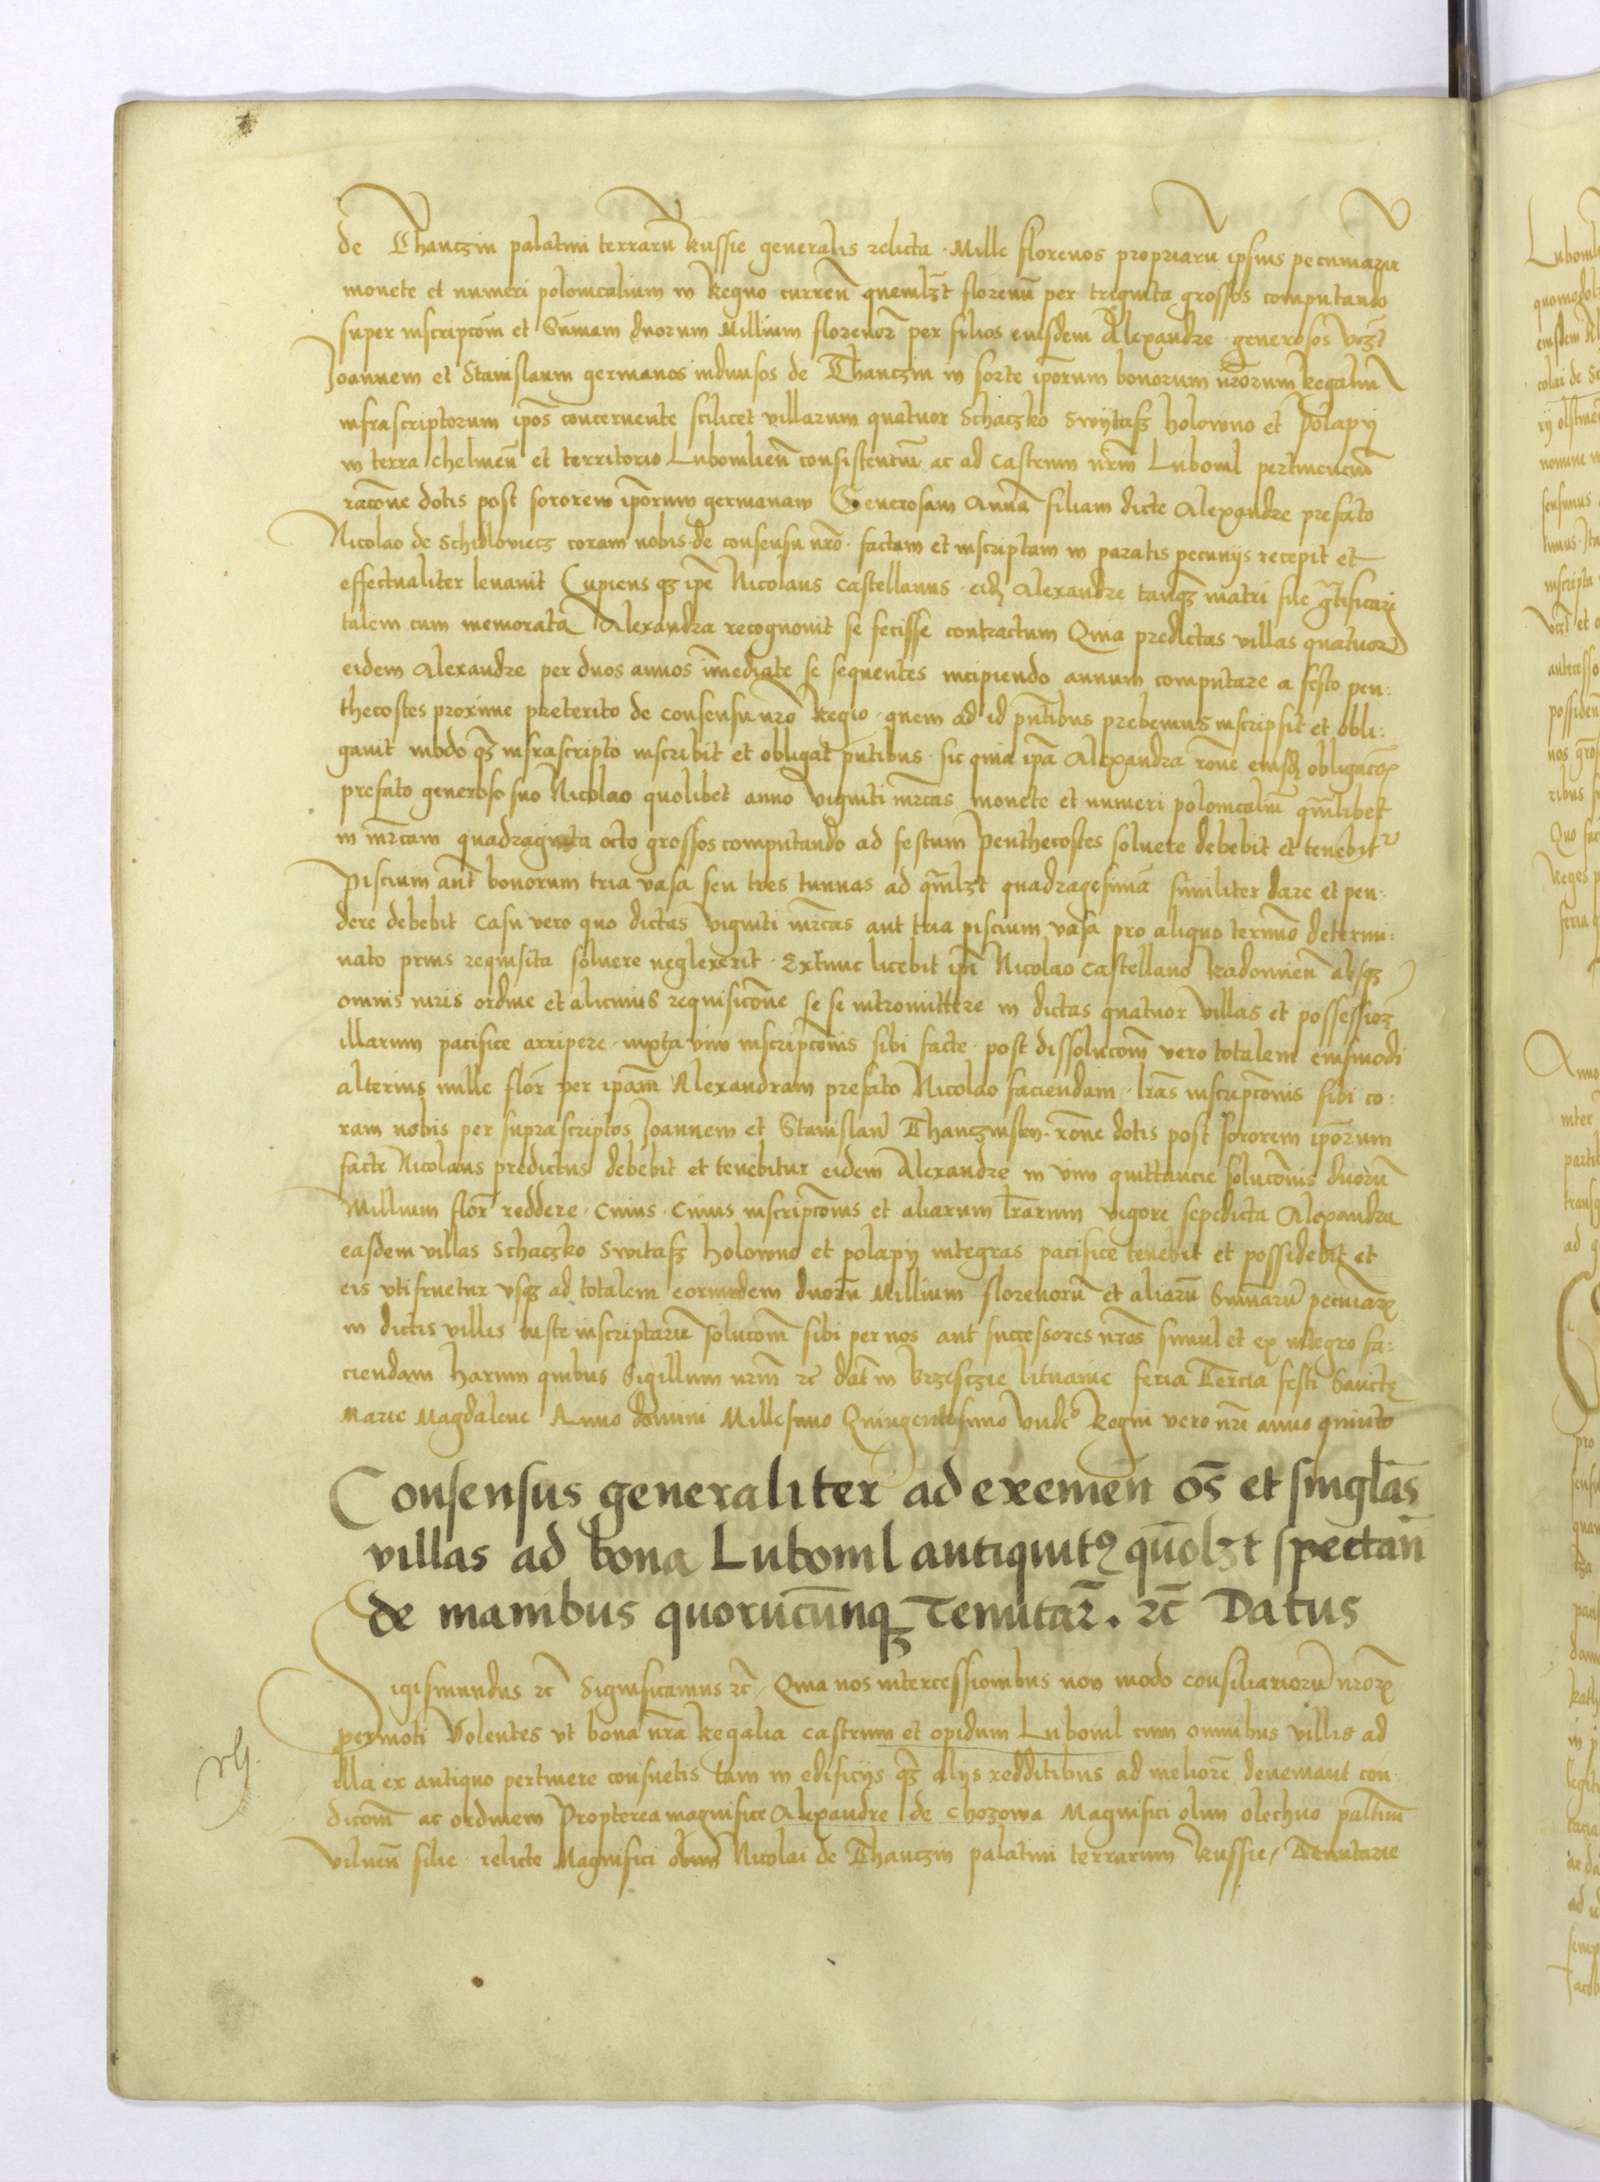 de Thanczin palatini terrarū Russie generalis relicta · Mille florenos propriarū ipsius pecuniarū
monete et numeri polonicalium in Regno curreñ quemlȝt florenū per triginta grossos computando
super inscripcōm et Sūmam duorum Millium florenoꝝ per filios eiusdem Alexandre · generosos vcȝt
Joannem et Stanislaum germanos indiuisos de Thanczin in sorte ipōrum bonorum nrōrum Regaliū
infrascriptorum ipōs concernente scilicet villarum quatuor Schaczko Swytasz holowno et Polapy
in terra chelmeñ et territorio Lubomlieñ consistentiū ac ad castrum nrm̄ Luboml pertinenciū
racōne dotis post sororem ipōrum germanam Generosam Annā filiam dicte Alexandre prefato
Nicolao de Schidloviecz coram nobis · de consensu nrō · factam et inscriptam in paratis pecunijs recepit et
effectualiter leuauit Cupiens qꝫ ipē Nicolaus castellanus · eidꝫ Alexandre tanqꝫ matri sue gr̄tificari
talem cum memorata Alexandra recognouit se fecisse contractum Quia predictas villas quatuor
eidem Alexandre per duos annos īmediate se sequentes incipiendo annum computare a festo pen:
thecostes proxime preterito de consensu nrō Regio · quem ad id pn̄tibus prebemus inscripsit et obli:
gauit modo qꝫ infrascripto inscribit et obligat pn̄tibus · sic quia ipā Alexandra rōne eiusdꝫ obligacōꝭ
prefato generoso suo Nicolao quolibet anno viginti mr̄cas monete et numeri polonicaliū qm̄libet
in mr̄cam quadraginta octo grossos computando ad festum Penthecostes soluere debebit et tenebitʳ
Piscium aūt bonorum tria vasa seu tres tunnas ad qm̄lȝt quadragesimā similiter dare et pen·
dere debebit Casu vero quo dictas viginti mr̄cas aut tria piscium vasa pro aliquo termīo determi:
nato prius requisita soluere neglexerit · Extunc licebit ipī Nicolao Castellano Radomieñ absqꝫ
omnis iuris ordine et alicuius requisicōne se se intromittere in dictas quatuor villas et possessioꝫ
illarum pacifice arripere · iuxta vim inscripcōnis sibi facte · post dissolucōm vero totalem eiusmodi
alterius mille flor̄ per ipam̄ Alexandram prefato Nicolao faciendam · lrās inscripcōnis sibi co:
ram nobis per suprascriptos Joannem et Stanislaū Thanczinsky · rōne dotis post sororem ipōrum
facte Nicolaus predictus debebit et tenebitur eidem Alexandre in vim quittancie solucōnis duorū
Millium flor̄ reddere · Cuius · Cuius inscripcōnis et aliarum lrārum vigore sepedicta Alexandra
easdem villas Schaczko Switasz holowno et polapy integras pacifice tenebit et possidebit et
eis vtifruetur vsqꝫ ad totalem eorundem duorū Millium florenorū et aliarū Sum̄arū pecuniarꝫ
in dictis villis iuste inscriptarū solucōm sibi per nos aut successores nrōs simul et ex integro fa:
ciendam harum quibus Sigillum nrm̄ ꝛc̄ dat̄ in Brzesczie lituanie feria Tercia festi Sancte
Marie Magdalene Anno domini Millesimo Quingentesimo Undeᵒ Regni vero nrī anno quinto
Consensus generaliter ad exemeñ oēs et singlās
villas ad bona Luboml antiquitꝰ quōlȝt spectañ
de manibus quorūcunqꝫ Tenutar̄ . ꝛc̄ Datus
Sigismundus ꝛc̄ Significamus ꝛc̄ / Quia nos intercessionibus non modo consiliariorū nrōꝝ
permoti Volentes vt bona nrā Regalia castrum et opidum Luboml cum omnibus villis ad
illa ex antiquo pertinere consuetis tam in edificijs qꝫ alijs redditibus ad meliorē deueniant con·
dicōm ac ordinem Propterea magnifice Alexandre de Chozowa Magnifici olim olechno pallīni
vilneñ filie · relicte Magnifici olim Nicolai de Thanczin palatini terrarum Russie / Tenutarie